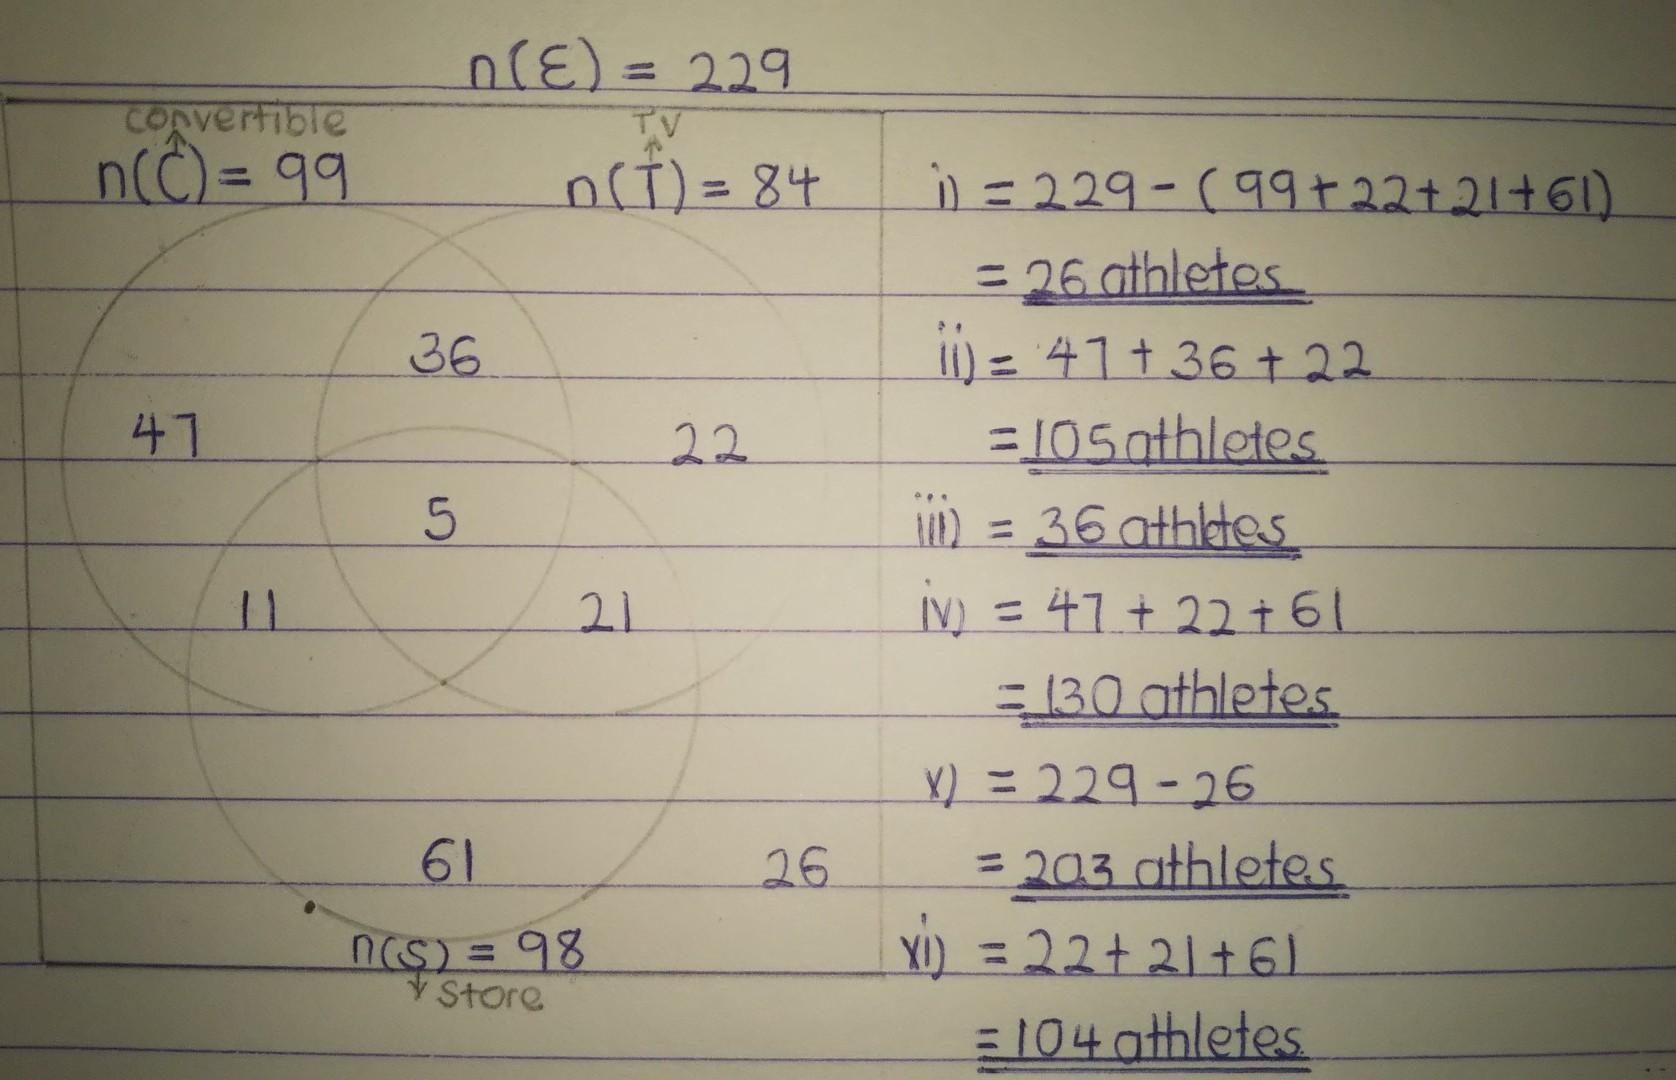 n(Ɛ) = 229
convertible
TV
n(C) = 99
n(T) = 84
36
47
22
5
11
21
61
26
n(S) = 98
store
i) = 229 - (99+22+21+61)
= 26 athletes
ii) = 47 + 36 + 22
= 105 athletes
iii) = 36 athletes
iv) = 47 + 22 + 61
= 130 athletes
v) = 229 - 26
= 203 athletes
xi) = 22 + 21 + 61
= 104 athletes